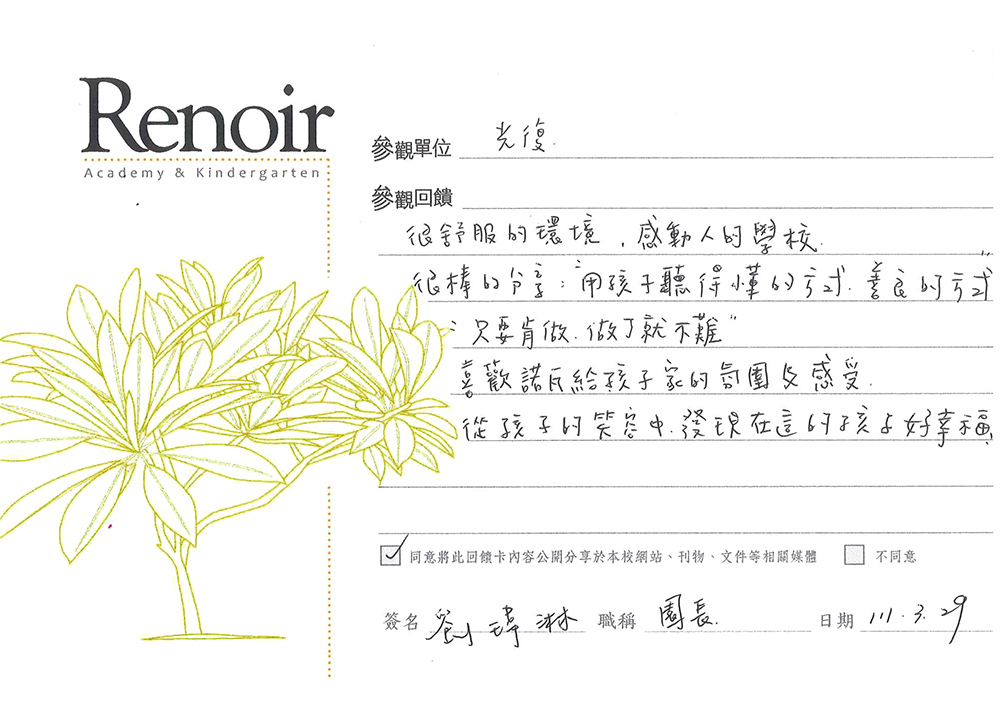 Renoir
Academy & Kindergarten
參觀單位 光復
參觀回饋
很舒服的環境,感動人的學校.
很棒的分享:"用孩子聽得懂的方式.善良的方式"
"只要肯做.做了就不難"
喜歡諾瓦給孩子家的氛圍及感受.
從孩子的笑容中.發現在這的孩子好幸福.
同意將此回饋卡內容公開分享於本校網站、刊物、文件等相關媒體 不同意
簽名 劉瑋淋 職稱 園長. 日期 111.3.29